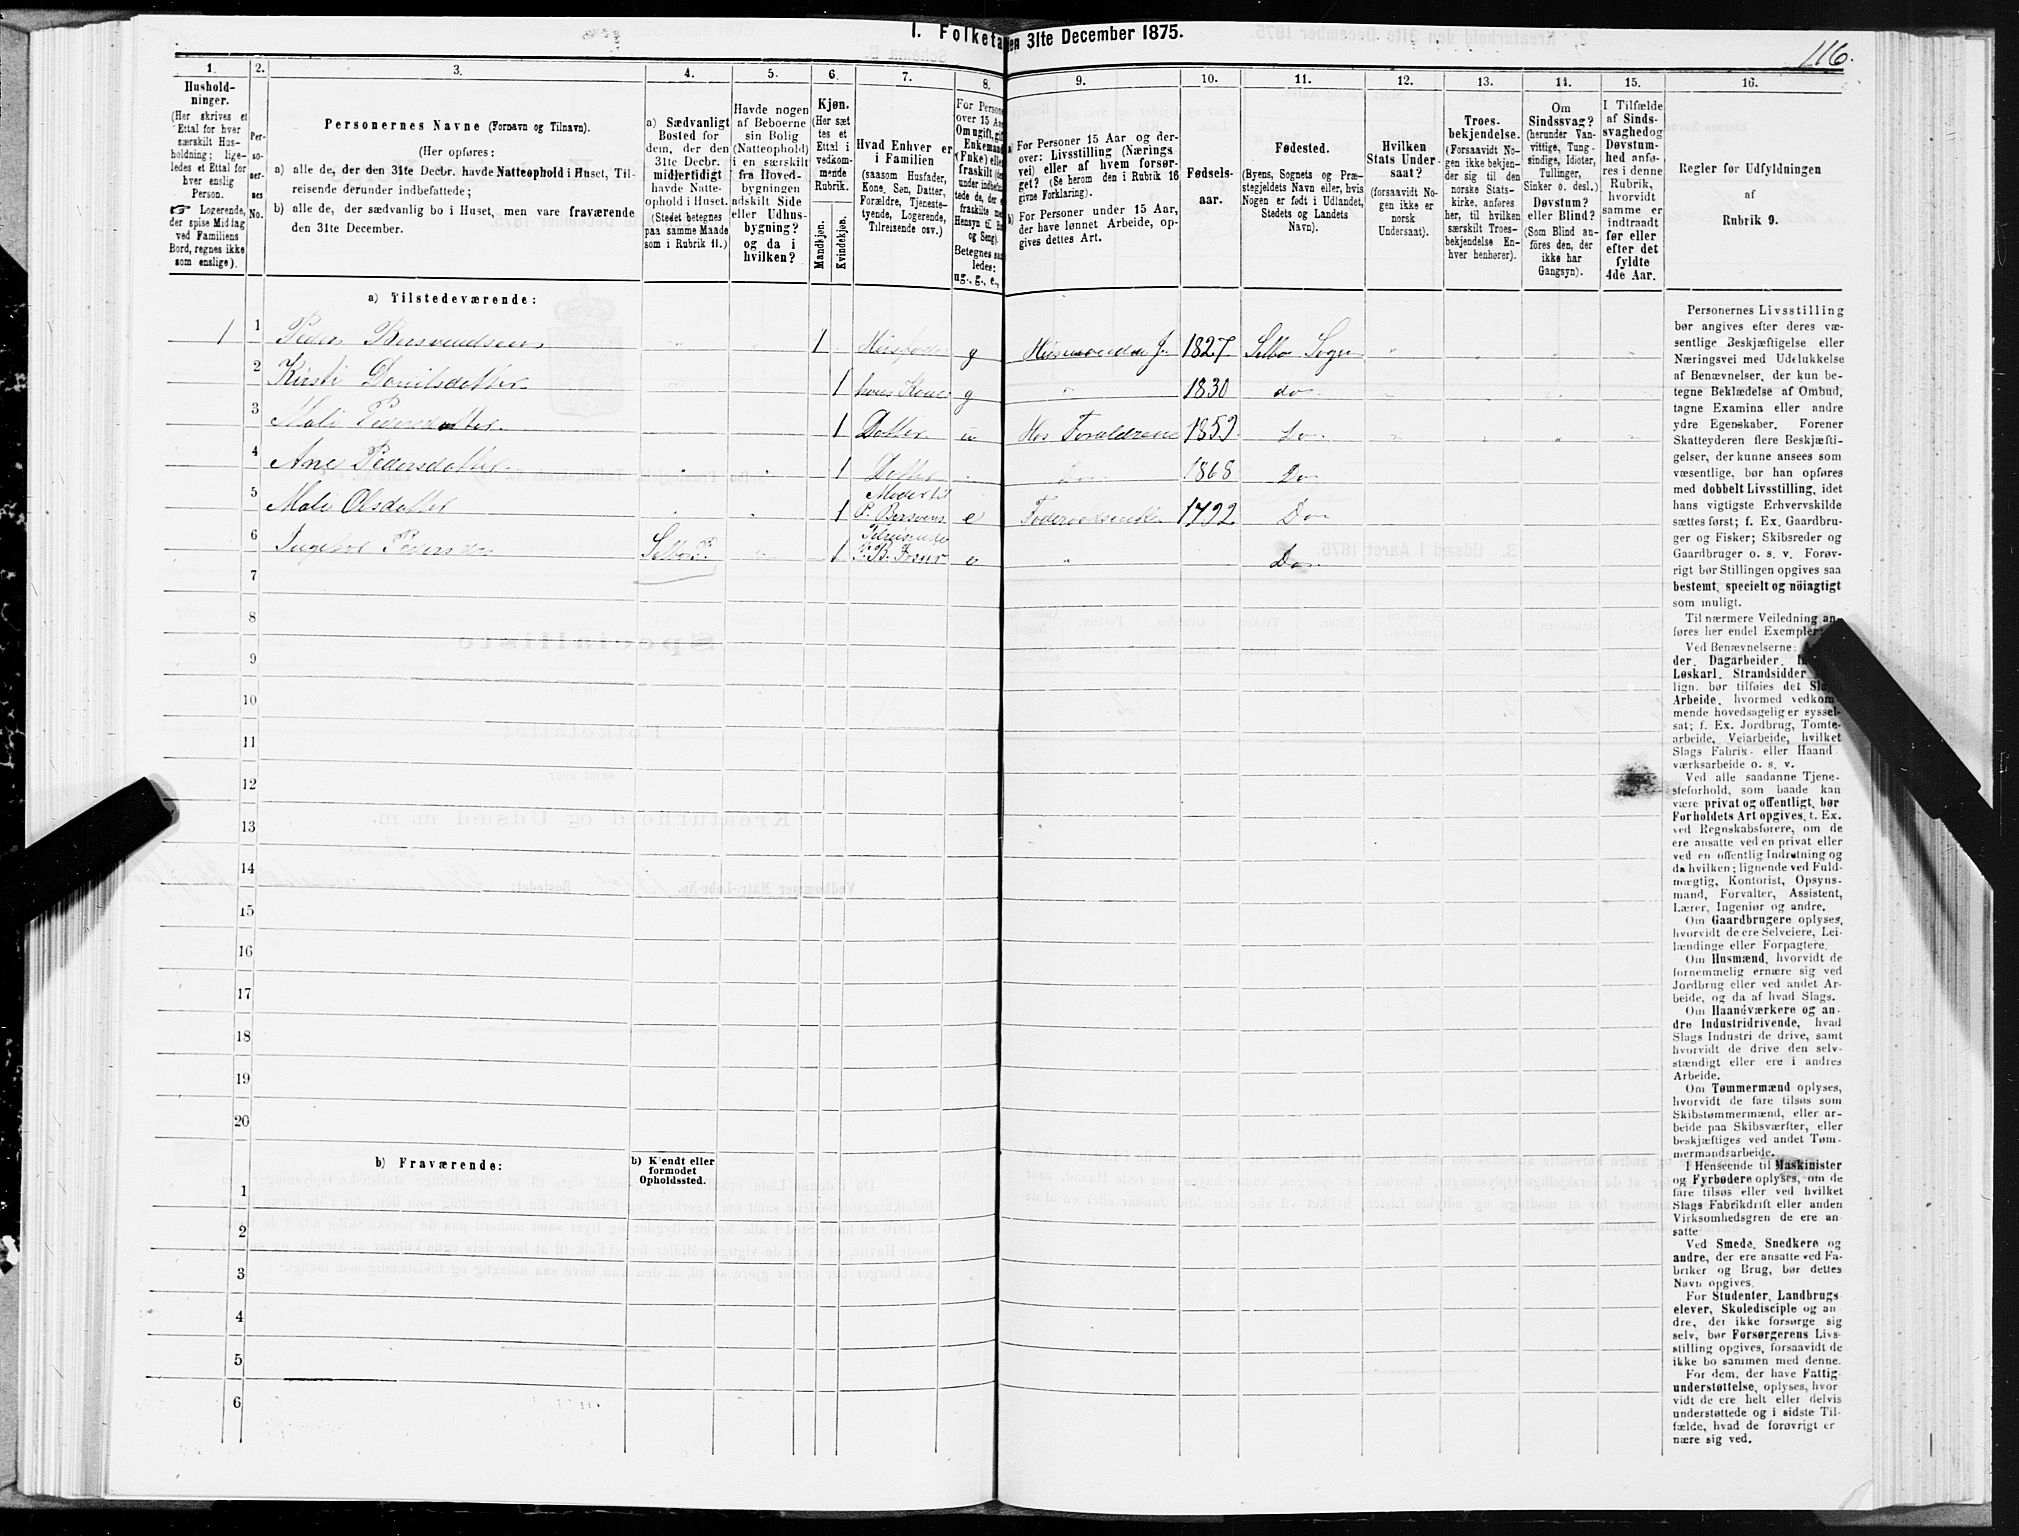 I. Folketa en 31te December 1875.
116.
1.
Hushold-
ninger.
(Her skrives et
Ettal for hver
særskilt Hus-
holdning; lige-
ledes et Ettal for
hver enslig
Person.
☞ Logerende,
der spise Middag
ved Familiens
Bord, regnes ikke
som enslige).
2.
Per-
so-
ner-
nes
No.
3.
Personernes Navne (Fornavn og Tilnavn).
(Her opføres:
a) alle de, der den 31te Decbr. havde Natteophold i Huset, Til-
reisende derunder indbefattede;
b) alle de, der sædvanlig bo i Huset, men vare fraværende
den 31te December.
4.
a) Sædvanligt
Bosted for
dem, der den
31te Decbr.
midlertidigt
havde Natte-
ophold i Huset.
(Stedet betegnes
paa samme Maade
som i Rubrik 11.)
5.
Havde nogen
af Beboerne
sin Bolig
(Natteophold)
i en særskilt
fra Hoved-
bygningen
adskilt Side
eller Udhus-
bygning?
og da i
hvilken?
6.
Kjøn.
(Her sæt
tes et
Ettal i
vedkom-
mende
Rubrik.
Mandkjøn.
Kvindekjøn.
7.
Hvad Enhver er
i Familien
(saasom Husfader,
Kone, Søn, Datter,
Forældre, Tjeneste-
tyende, Logerende,
Tilreisende osv.)
8.
For Persone
over 15 Aar
Om ugift, gift
Enkemand
(Enke) eller
fraskilt (de
under indbefat
tede de, der e
fraskilte me
Hensyn til Bo
og Seng).
Betegnes saa
ledes:
ug., g., e.,
9.
a) For Personer 15 Aar og der-
over: Livsstilling (Nærings
vei) eller af hvem forsør-
get? (Se herom den i Rubrik 16
givne Forklaring).
b) For Personer under 15 Aar,
der have lønnet Arbeide, op-
gives dettes Art.
10.
Fødsels-
aar.
11.
Fødested.
(Byens, Sognets og Præ-
stegjeldets Navn eller, hvis
Nogen er født i Udlandet,
Stedets og Landets
Navn).
12.
Hvilken
Stats Under-
saat?
(forsaavidt No-
gen ikke er
norsk
Undersaat).
13.
Troes-
bekjendelse.
(Forsaavidt No-
gen ikke bekjen-
der sig til den
norske Stats-
kirke, anføres
her, til hvilken
særskilt Troes-
bekjendelse En-
hver henhører).
14.
Om
Sindssvag?
(herunder Van-
vittige, Tung-
sindige, Idioter,
Tullinger,
Sinker o. desl.)
Døvstum?
eller Blind?
(Som Blind an-
føres den, der
ikke har
Gangsyn).
15.
I Tilfælde
af Sinds-
svaghed og
Døvstum-
hed anfø-
res i denne
Rubrik,
hvorvidt
samme er
indtraadt
før eller
efter det
fyldte
4de Aar.
16.
Regler for Udfyldningen
af
Rubrik 9.
a) Tilstedeværende:
1 1 Peder Bersvendsen 1 Husfader g Husmand m J. 1827. Selbo Sogn
2 Kirsti Danilsdatter 1 hans Kone g " 1830 do
3 Mali Pedersdatter 1 Datter u Hos Foraldrene 1859 Do
4 Ane Pedersdatter 1 Datter Do 1868 Do
5 Mali Olsdatter 1 Moder til P. Bersvens. e 1792 Do
6 Pedersda Selbo P. 1 " Do
7
8
9
10
11
12
13
14
15
16
17
18
19
20
b) Fraværende:
b) Kjendt eller
formodet
Opholdssted.
1
2
3
4
5
6
Personernes Livsstilling
bør angives efter deres væ-
sentlige Beskjæftigelse eller
Næringsvei med Udelukkelse
af Benævnelser, der kun be-
tegne Beklædelse af Ombud,
tagne Examina eller andre
ydre Egenskaber. Forener
Skatteyderen flere Beskjæfti-
gelser, der kunne ansees som
væsentlige, bør han opføres
med dobbelt Livsstilling, idet
hans vigtigste Erhvervskilde
sættes først; f. Ex. Gaardbru-
ger og Fisker; Skibsreder og
Gaardbruger o. s. v. Forøv-
rigt bør Stillingen opgives saa
bestemt, specielt og nöiagtigt
som muligt.
Til nærmere Veiledning an-
føres her endel Exempler:
Ved Benævnelserne:
der, Dagarbeider,
Løskarl, Strandsidder
lign. bør tilføies det Slags
Arbeide, hvormed vedkom-
mende hovedsagelig er syssel-
sat; f. Ex. Jordbrug, Tomte-
arbeide, Veiarbeide, hvilket
Slags Fabrik- eller Haand-
værksarbeide o. s. v.
Ved alle saadanne Tjene-
steforhold, som baade kan
være privat og offentligt, bør
Forholdets Art opgives, t. Ex.
ved Regnskabsførere, om de
ere ansatte ved en privat eller
ved en offentlig Indretning og
da hvilken; lignende ved Fuld-
mægtig, Kontorist, Opsyns-
mand, Forvalter, Assistent,
Lærer, Ingeniør og andre.
Om Gaardbrugere oplyses,
hvorvidt de ere Selveiere, Lei-
lændinge eller Forpagtere.
Om Husmænd, hvorvidt de
fornemmelig ernære sig ved
Jordbrug eller ved andet Ar-
beide, og da af hvad Slags.
Om Haandværkere og an-
dre Industridrivende, hvad
Slags Industri de drive, samt
hvorvidt de drive den selv-
stændigt eller ere i andres
Arbeide.
Om Tømmermænd oplyses,
hvorvidt de fare tilsøs som
Skibstømmermænd, eller ar-
beide paa Skibsværfter, eller
beskjæftiges ved andet Tøm-
mermandsarbeide.
I Henseende til Maskinister
og Fyrbødere oplyses, om de
fare tilsøs eller ved hvilket
Slags Fabrikdrift eller anden
Virksomhedsgren de ere an-
satte
Ved Smede, Snedkere og
andre, der ere ansatte ved Fa-
briker og Brug, bør dettes
Navn opgives.
For Studenter, Landbrugs-
elever, Skoledisciple og an-
dre, der ikke forsørge sig
selv, bør Forsørgerens Livs-
stilling opgives, forsaavidt de
ikke bo sammen med denne.
For dem, der have Fattig-
understøttelse, oplyses, hvor-
vidt de ere helt eller delvis
understøttede og i sidste Til-
fælde, hvad de forøvrigt er
nære sig ved.